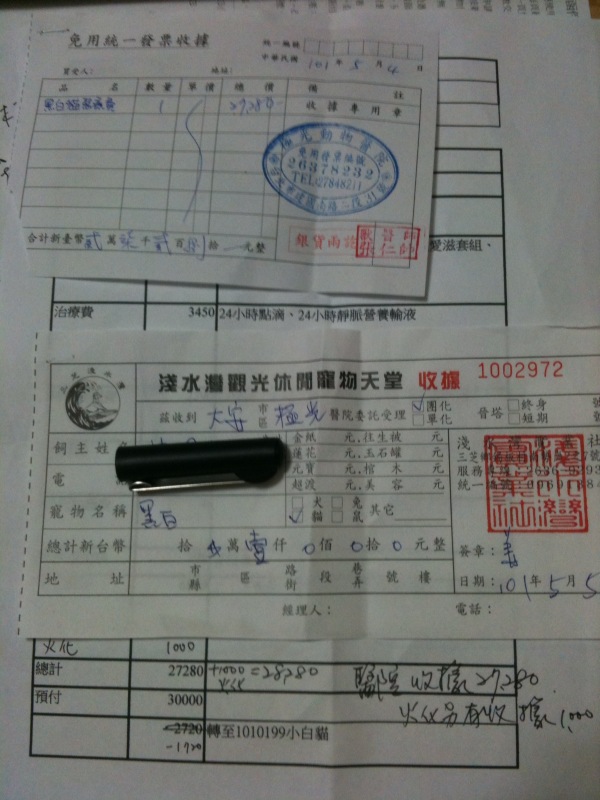 免用統一發票收據
統一編號
中華民國 101 年 5 月 4 日
買受人： 地址：
品 名 數 量 單 價 總 價 備 註
黑白貓醫療費 1 27,280 收據專用章
極光動物醫院
免用發票編號
26378232
TEL:27848211
合計新臺幣 貳 萬 柒 千 貳 百 捌 拾 元整
銀貨兩訖
愛滋套組、
治療費 3450 24小時點滴、24小時靜脈營養輸液
淺水灣觀光休閒寵物天堂 收據 1002972
茲收到 大安 市區 極光 醫院委託受理 ✓團化 單化 晉塔 終身 短期 號
飼主姓名
金紙 元,往生被 元
蓮花 元,玉石罐 元
電
元寶 元,棺木 元
超渡 元,美容 元
服務專線
統一編號
寵物名稱 黑白 犬 兔 ✓貓 鼠 其它
總計新台幣 拾 萬 壹 仟 0 佰 0 拾 0 元整
簽章：
地 址 市縣 區 路街 段 巷弄 號 樓
日期：101年5月5
經理人： 電話：
火化 1000
總計 27280 +1000 = 28,280
火化
醫院收據27,280
預付 30000
火化另有收據1,000
-2720 轉至1010199小白貓
-1720